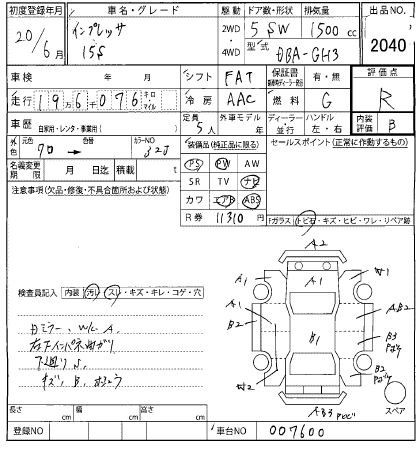 初度登録年月 車名・グレード 駆動 ドア数・形状 排気量 出品NO.
20/6月 インプレッサ 15S 2WD・4WD 5 SW 1500cc 2040
型式 DBA-GH3
車検 年 月 シフト FAT 保証書 有・無 評価点
走行 19万6千076キロ マイル 冷房 AAC 燃料 G R
車歴 自家用・レンタ・事業用( ) 定員 5人 外車モデル 年 ディーラー・並行 ハンドル 左・右 内装評価 B
外色 元色 色番 カラーNO 32J
名義変更期限 月 日迄 積載 t
装備品(純正品に限る) セールスポイント(正常に作動するもの)
PS PW AW
SR TV ナビ
カワ エアB ABS
R券 11310円
注意事項(欠品・修復・不具合箇所および状態)
Fガラス(トビ石・キズ・ヒビ・ワレ・リペア跡
検査員記入 内装(汚レ・スレ・キズ・キレ・コゲ・穴
A2
A1 A1
A1 A,B2
B2 B1 B3
B2
AB3
スペア
長さ cm 幅 cm 高さ cm
登録NO 車台NO 007600